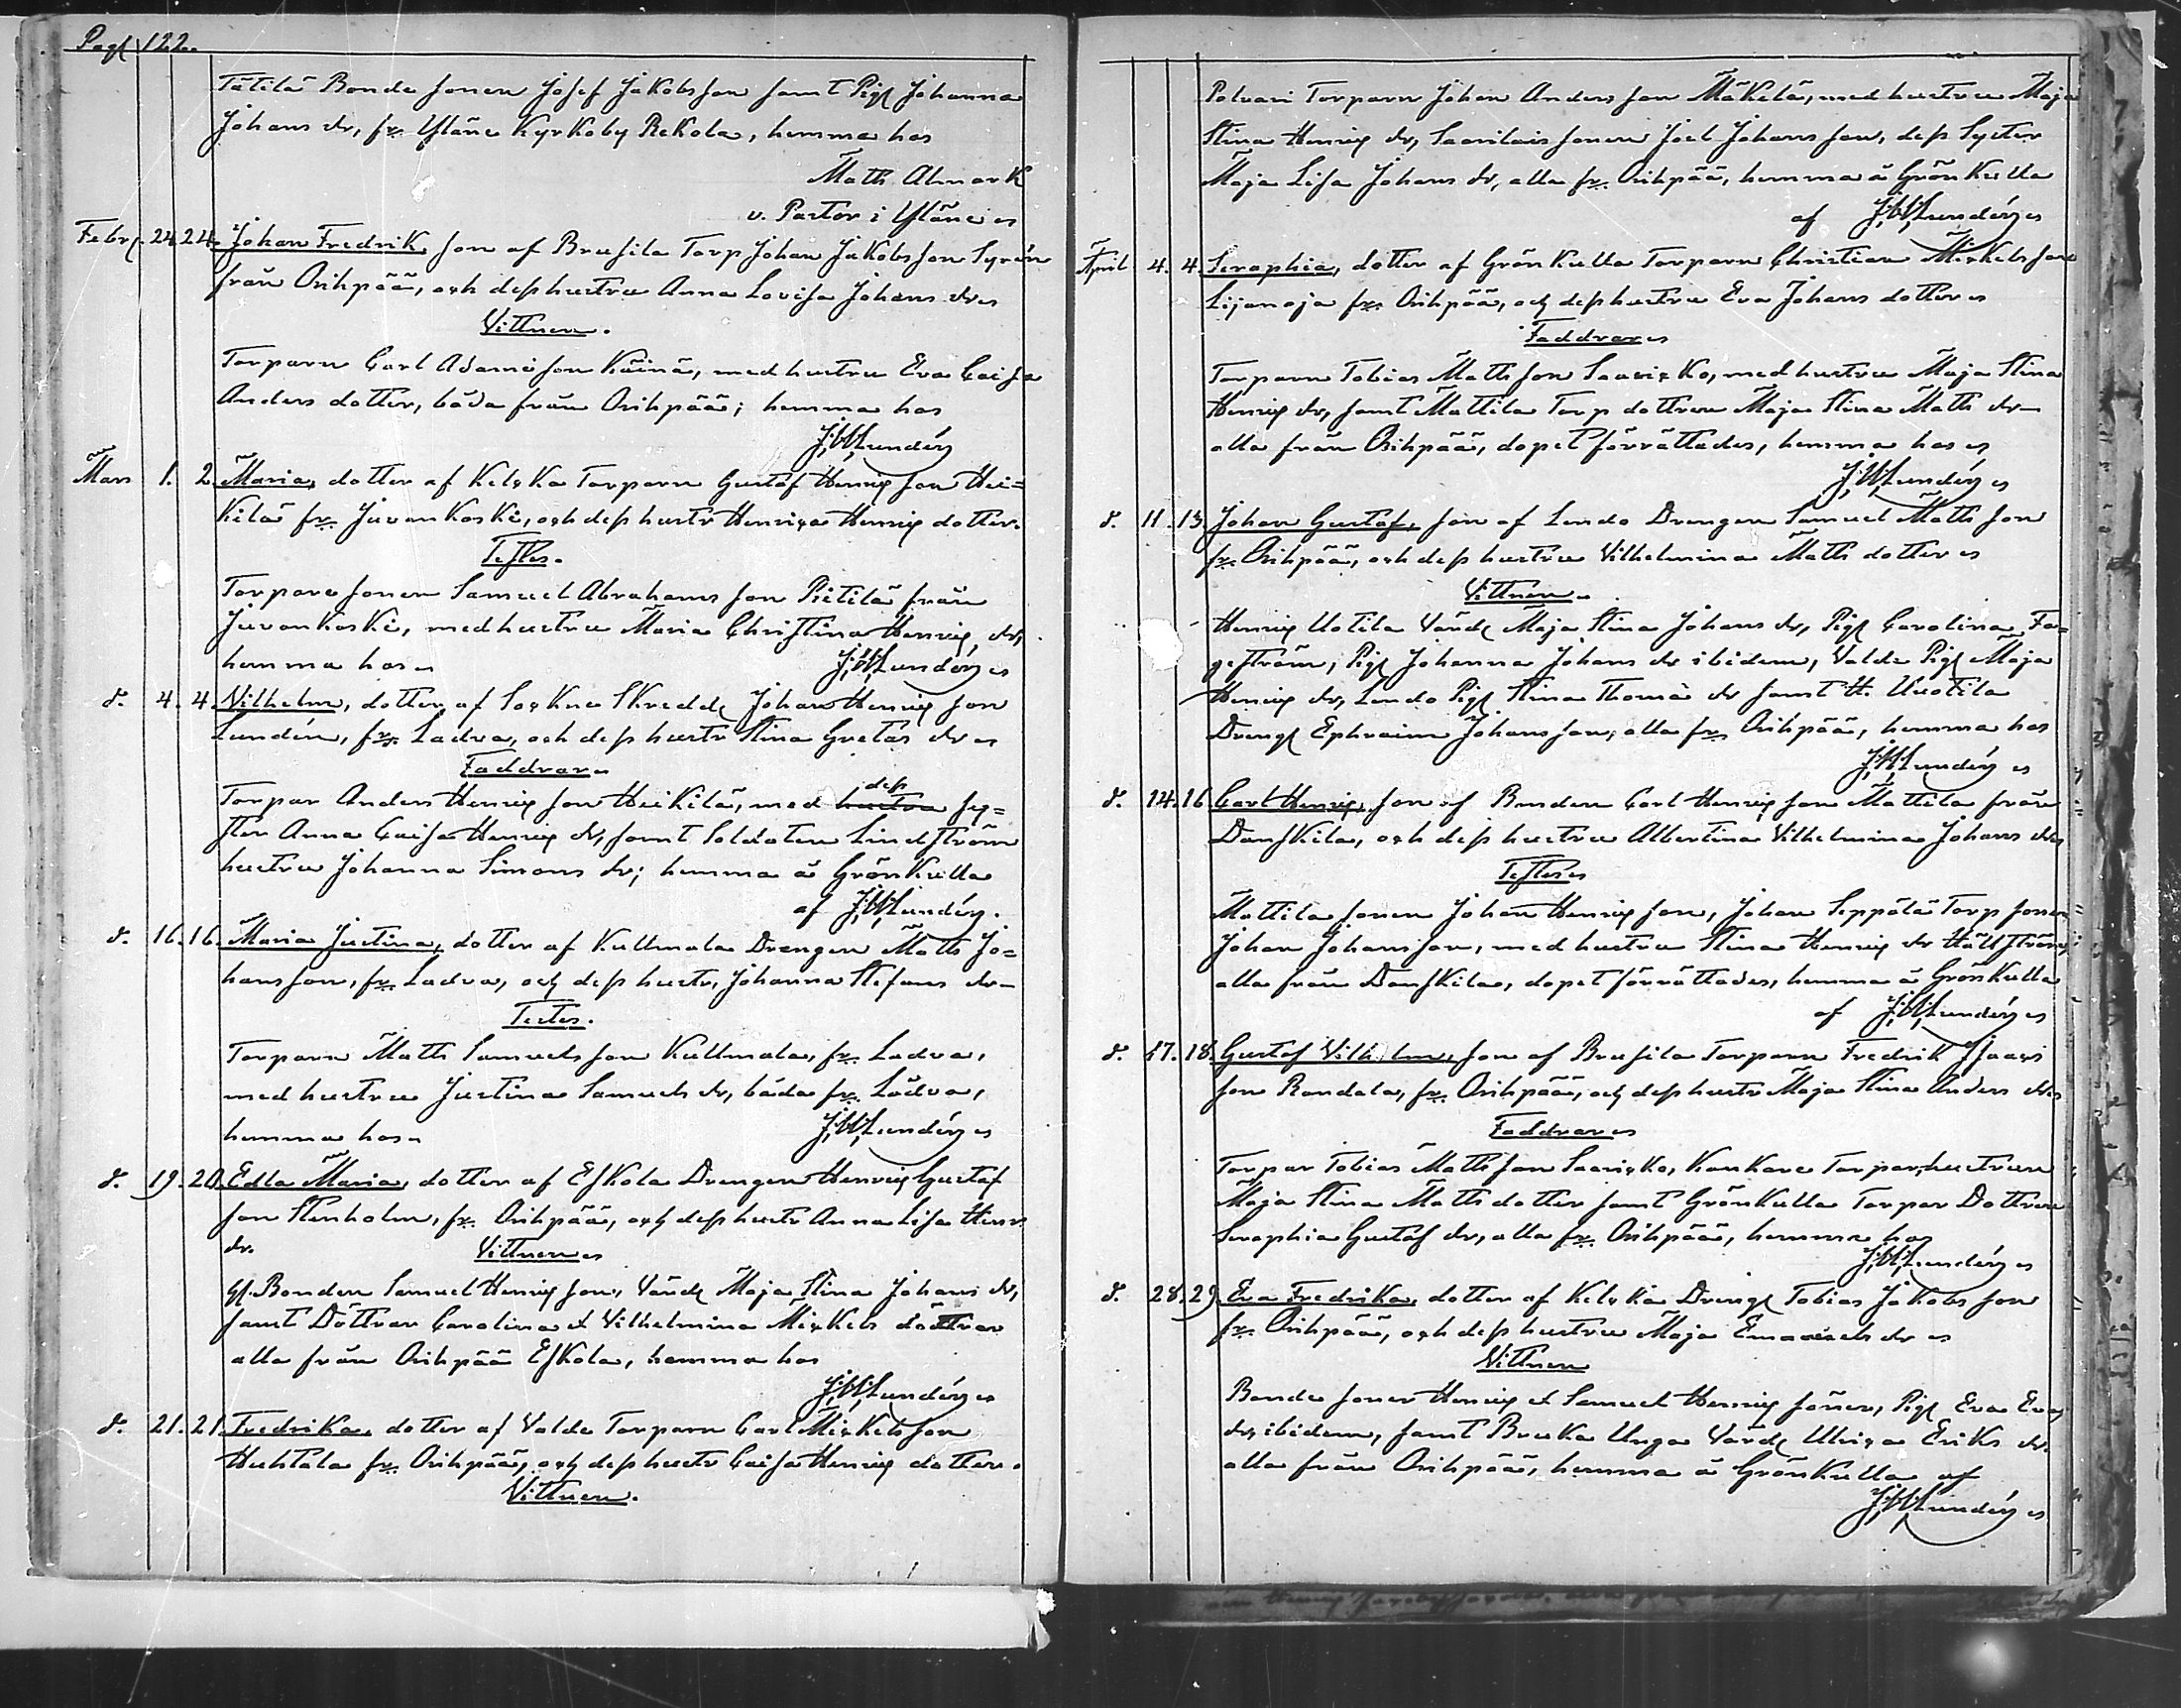 Pag. 122.
Tätilä Bonde sonen Josef Jakobsson samt Pig. Johanna
Johans dr, fr. Yläne Kyrkoby Rekola, hemma hos
Math Almark
v. Pastor i Yläne
Febr. 24. 24. Johan Fredrik, son af Brusila Torp Johan Jakobsson Syrén
från Orihpää, och dess hustru Anna Lovisa Johans dr
Vittnen.
Torparn Carl Adamsson Käinä, med hustru Eva Caisa
Anders dotter, båda från Orihpää; hemma hos
J.W.Lundén
Mars 1. 2. Maria, dotter af Kelska Torparn Gustaf Henricsson Hei=
kilä fr. Juvankoski, och dess hustr Henrica Henrics dotter.
Testes.
Torpare sonen Samuel Abrahamsson Pietilä från
Juvankoski, med hustru Maria Christina Henrics dr,
hemma hos J.W.Lundén
d. 4. 4. Vilhelm, dotter af Sockne Skredd. Johan Henricsson
Lundén, fr. Ladva, och dess hustr Stina Gretas dr
Faddrar
dess
Torpar Anders Henricsson Heikilä, med hustru sy=
ster Anna Caisa Henrics dr, samt Soldaten Lindström
hustru Johanna Simons dr; hemma å Grönkulla
af J.W.Lundén.
d. 16. 16. Maria Justina, dotter af Kullmala Drengen Math Jo=
hansson, fr. Ladva, och dess hustr. Johanna Stefans dr
Testes.
Torparn Math Samuelsson Kullmala, fr. Ladva,
med hustru Justina Samuels dr, båda fr. Ladva,
hemma hos J.W.Lundén
d. 19. 20. Edla Maria, dotter af Eskola Drengen Henric Gustaf
son Stenholm, fr. Orihpää, och dess hustr Anna Lisa Henr.
dr. Vittnen
gl. Bonden Samuel Henricsson, Värd. Maja Stina Johans dr,
samt Döttrar Carolina et Vilhelmina Mickels döttrar
alla från Orihpää Eskola, hemma hos
J.W.Lundén
d. 21. 21. Fredrika, dotter af Valde Torparn Carl Mickelsson
Huhtala fr. Orihpää, och dess hustr Caisa Henrics dotter.
Vittnen.
Polvari Torparn Johan Andersson Mäkelä, med hustru Maja
Stina Henrics dr, Saarilais sonen Joel Johansson, dess Syster
Maja Lisa Johans dr, alla fr. Orihpää, hemma å Grönkulla
af J.W.Lundén
April 4. 4. Seraphia, dotter af Grönkulla Torparn Christian Mickelsson
Lijanoja fr. Orihpää, och dess hustru Eva Johans dotter
Faddrar
Torparn Tobias Mathsson Saaricko, med hustru Maja Stina
Henrics dr, samt Mattila Torp dottren Maja Stina Maths dr
alla från Orihpää, dopet förrättades, hemma hos
J.W.Lundén
d. 11. 13. Johan Gustaf, son af Lendo Drengen Samuel Mathsson
fr. Orihpää, och dess hustru Vilhelmina Maths dotter
Vittnen
Henric Uotila Värd. Maja Stina Johans dr, Pig. Carolina Fa=
gerström, Pig. Johanna Johans dr ibidem, Valde Pig. Maja
Henrics dr, Lendo Pig. Stina Thomæ dr samt H. Uuotila
Dreng. Ephraim Johansson, alla fr. Orihpää, hemma hos
J.W.Lundén
d. 14. 16. Carl Henric, son af Bonden Carl Henricsson Mattila från
Danskila, och dess hustru Albertina Vilhelmina Johans dr
Testes
Mattila sonen Johan Henricsson, Johan Seppälä Torp sonen
Johan Johansson, med hustru Stina Henrics dr Hällström,
alla från Danskila, dopet förrättades, hemma å Grönkulla
af J.W.Lundén
d. 17. 18. Gustaf Vilhelm, son af Brusila Torparn Fredrik Isaacs
son Randala, fr. Orihpää, och dess hustr Maja Stina Anders dr
Faddrar
Torpar Tobias Mathsson Saaricko, Kankare Torpar hustrun
Maja Stina Maths dotter samt Grönkulla Torpar Dottren
Seraphia Gustafs dr, alla fr. Orihpää, hemma hos
J.W.Lundén
d. 28. 29. Eva Fredrika, dotter af Kelska Dreng. Tobias Jakobsson
fr. Orihpää, och dess hustru Maja Emanuels dr
Vittnen
Bonde soner Henric et Samuel Henrics söner, Pig. Eva
dr, ibidem, samt Bruka Unga Värd. Ulrica Eriks dr.
alla från Orihpää, hemma å Grönkulla af
J.W.Lundén